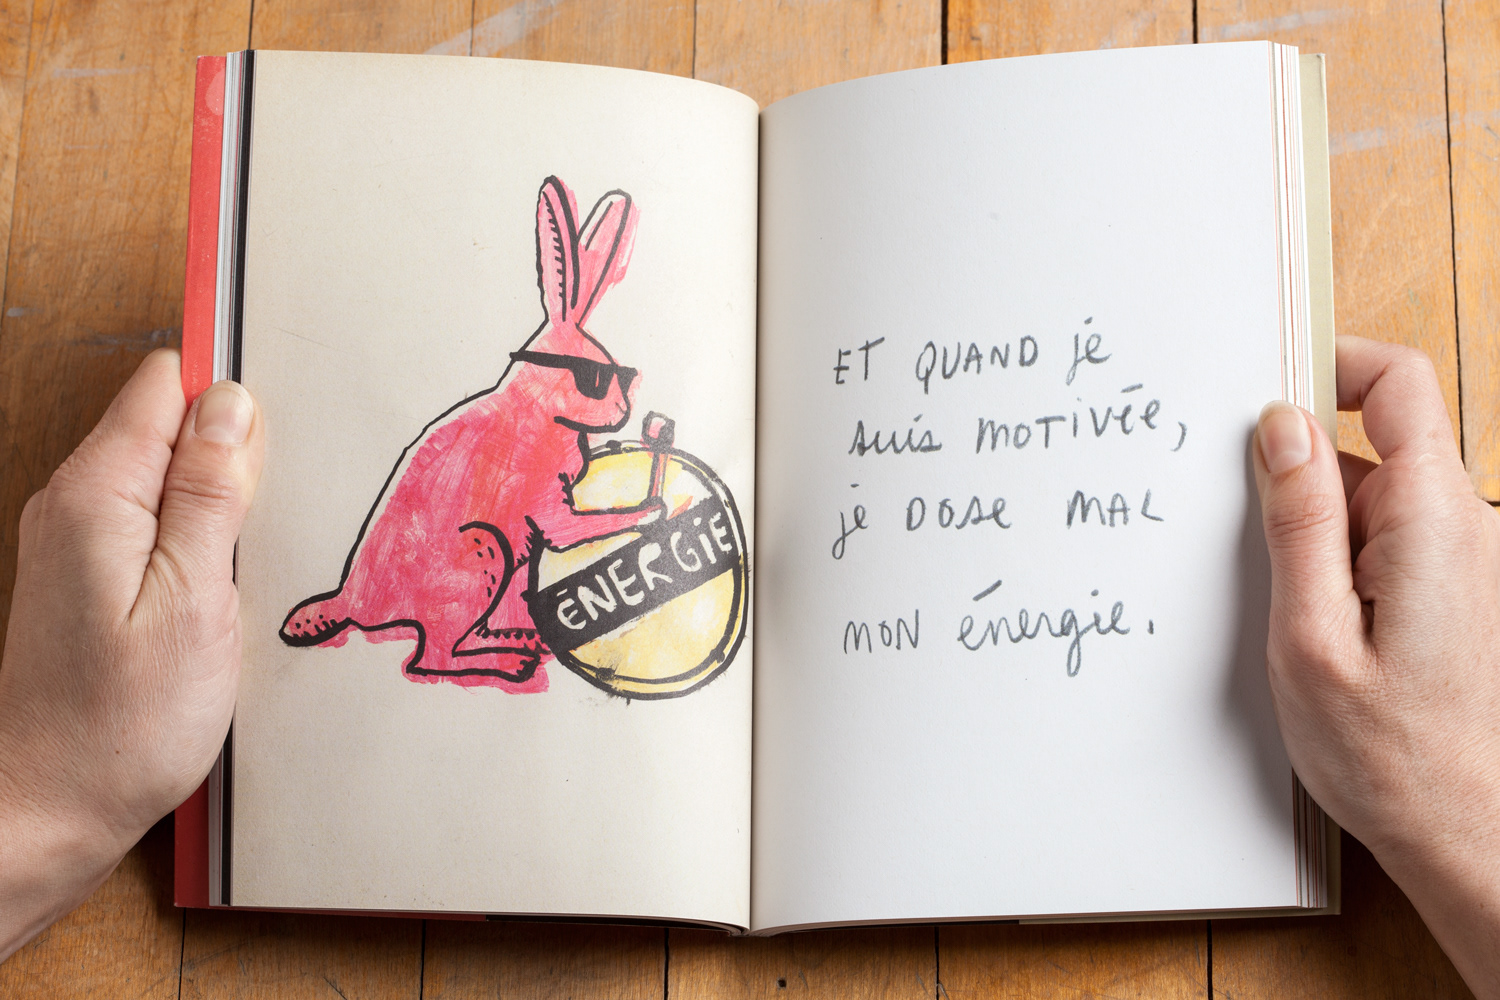 ÉNERGIE
ET QUAND je
suis MOTIVÉE,
je DOSE MAL
MON énergie.